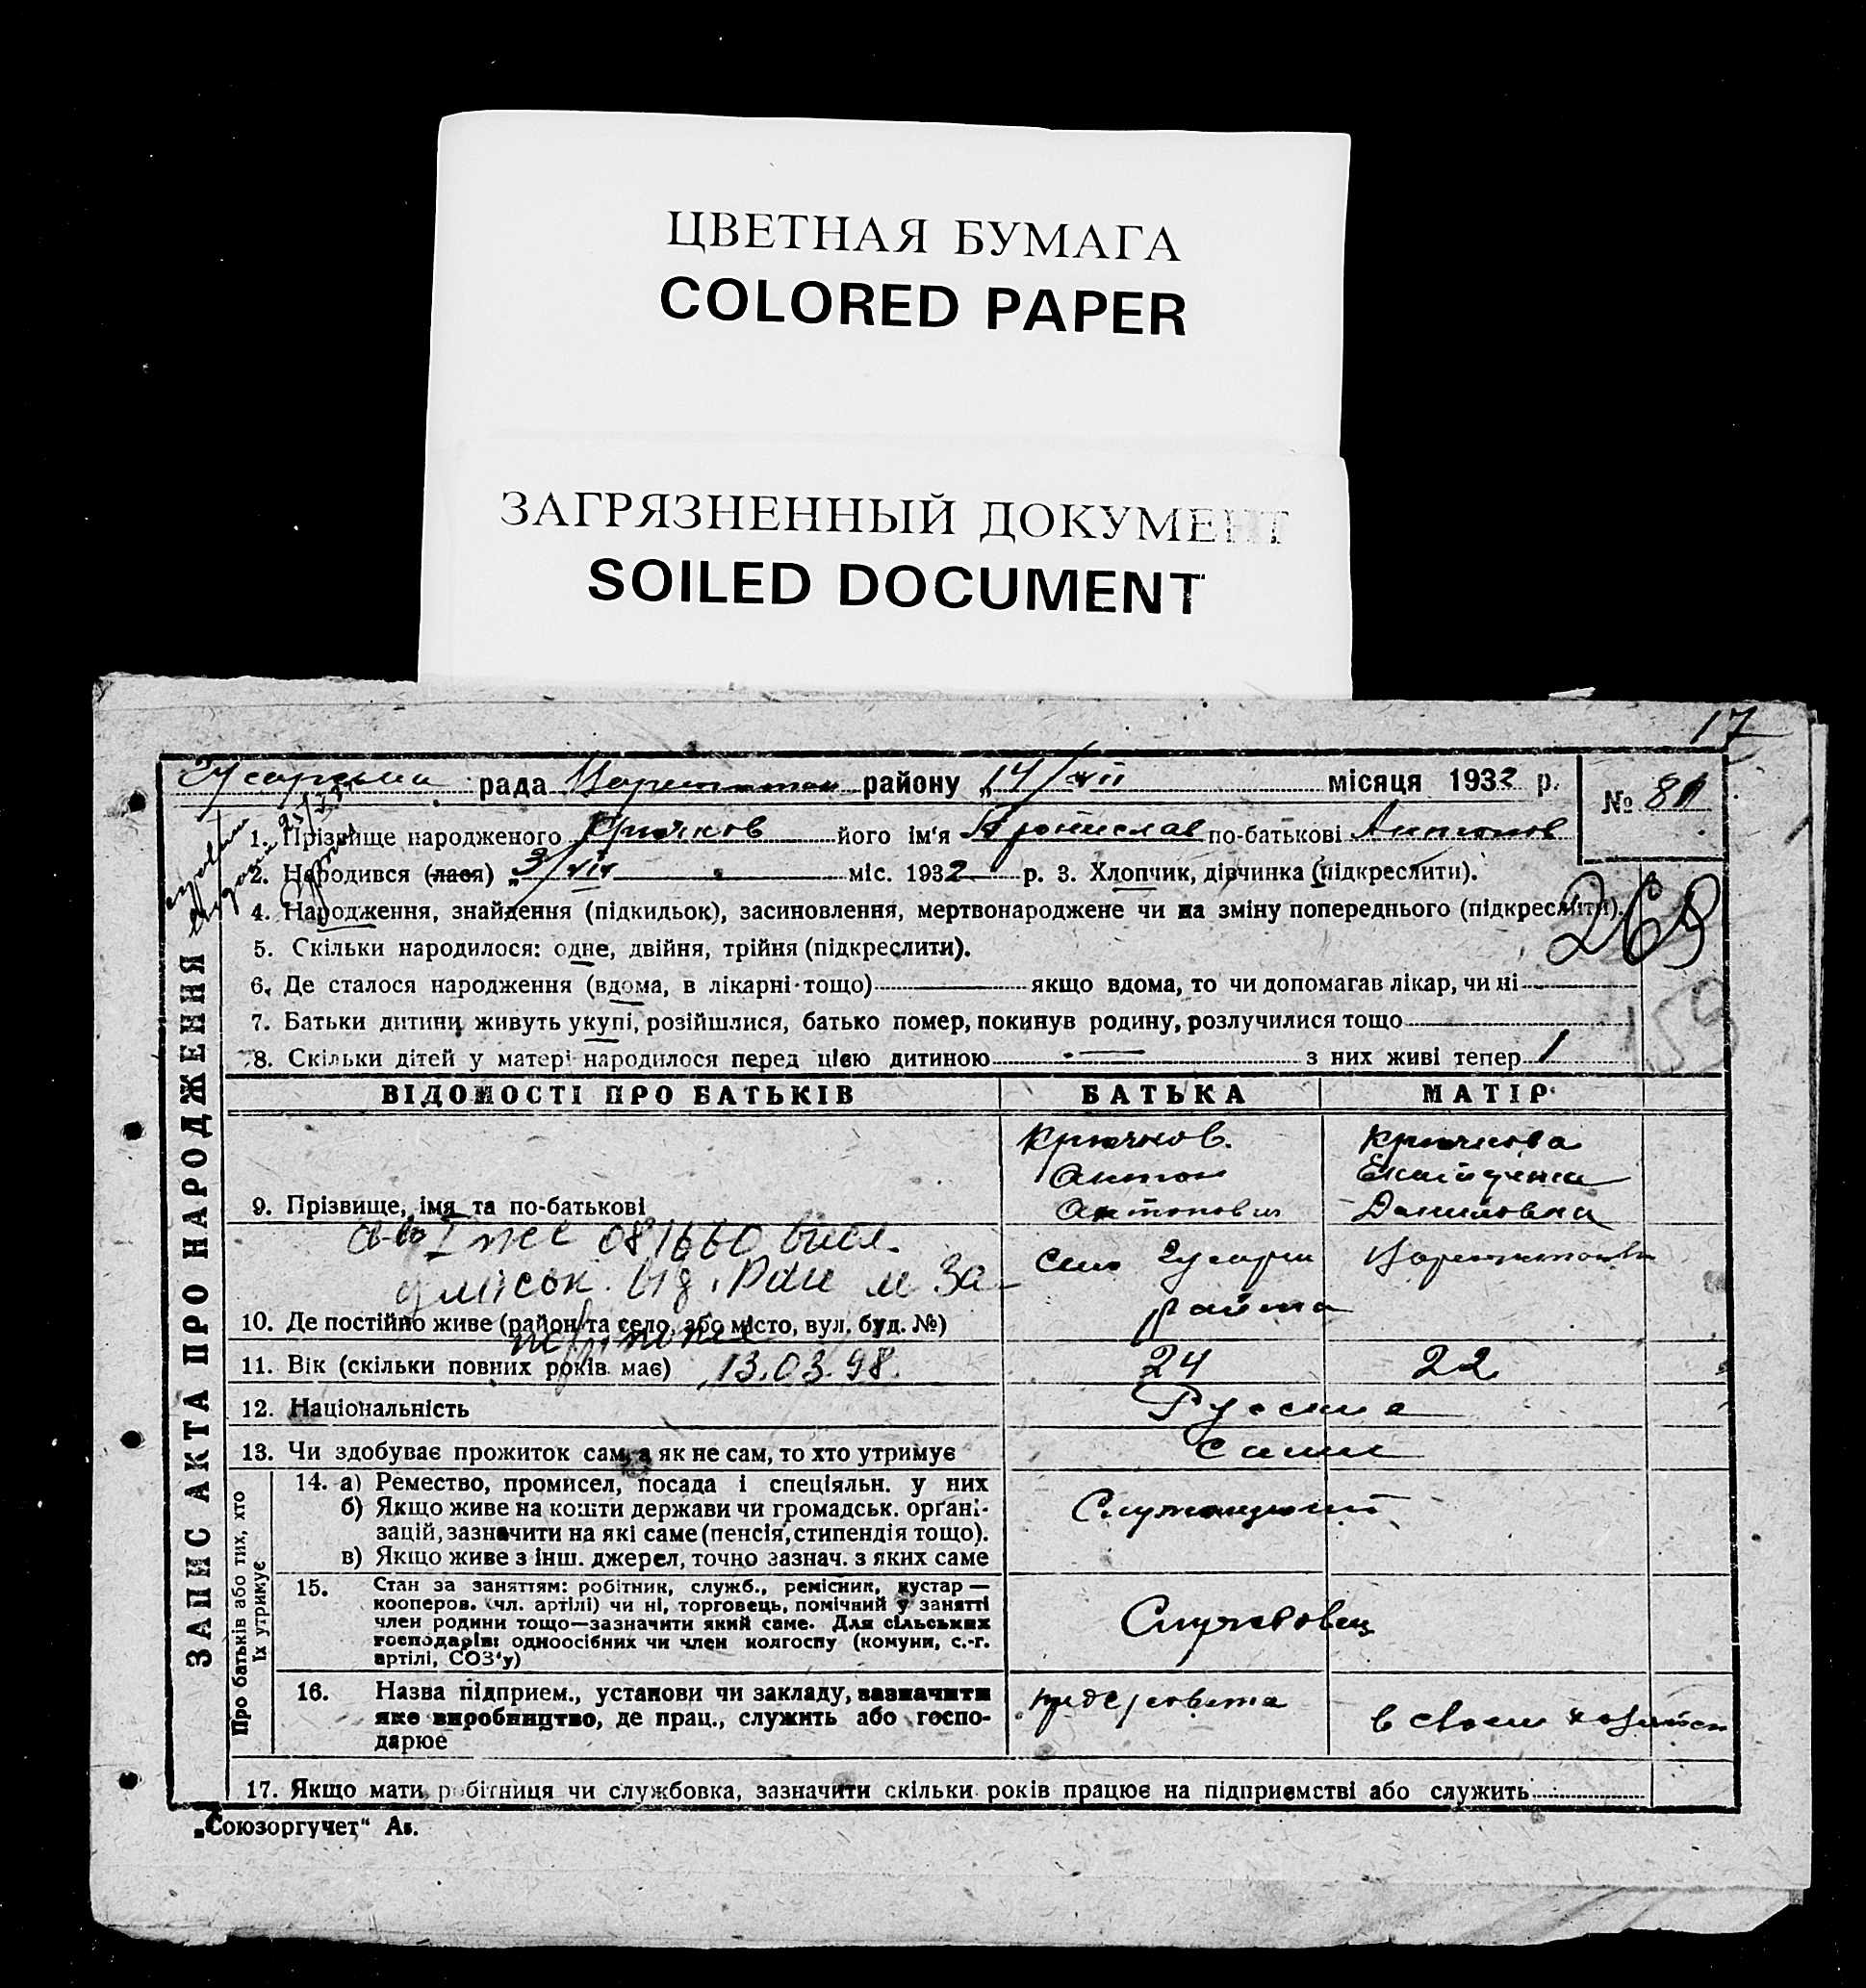 ЦВЕТНАЯ БУМАГА
COLORED PAPER
ЗАГРЯЗНЕННЫЙ ДОКУМЕНТ
SOILED DOCUMENT
17
рада району 14/VII місяця 1932 р.
№ 81
1. Прізвище народженого Крючков його ім'я Броніслав по-батькові Антонов
2. Народився (лася) „3/VII міс. 1932 р. 3. Хлопчик, дівчинка (підкреслити).
4. Народження, знайдення (підкидьок), засиновлення, мертвонароджене чи на зміну попереднього (підкреслити).
269
5. Скільки народилося: одне, двійня, трійня (підкреслити).
6. Де сталося народження (вдома, в лікарні тощо) якщо вдома, то чи допомагав лікар, чи ні
159
7. Батьки дитини живуть укупі, розійшлися, батько помер, покинув родину, розлучилися тощо
8. Скільки дітей у матері народилося перед цією дитиною — з них живі тепер 1
ЗАПИС АКТА ПРО НАРОДЖЕННЯ
ВІДОМОСТІ ПРО БАТЬКІВ БАТЬКА МАТІР
Крючков Крючкова
Антон
9. Прізвище, імя та по-батькові Антонович Даниловна
св-во I 081660 вид.
міськ. від. м За-
село
района
10. Де постійно живе (район та село, або місто, вул. буд. №)
11. Вік (скільки повних років має) 13.03.98. 24 22
12. Національність Русские
13. Чи здобуває прожиток сам, а як не сам, то хто утримує сами
Про батьків або тих, хто їх утримує
14. а) Ремество, промисел, посада і спеціяльн. у них
б) Якщо живе на кошти держави чи громадськ. орґані-
зацій, зазначити на які саме (пенсія, стипендія тощо).
в) Якщо живе з інш. джерел, точно зазнач. з яких саме
Служащий
15. Стан за заняттям: робітник, служб., ремісник, кустар —
кооперов. (чл. артілі) чи ні, торговець, помічний у занятті
член родини тощо—зазначити який саме. Для сільських
господарів: одноосібних чи член колгоспу (комуни, с.-г.
артілі, СОЗ'у)
Службовец
16. Назва підприєм., установи чи закладу, зазначити
яке виробництво, де прац., служить або госпо-
дарюе
в своем
17. Якщо мати робітниця чи службовка, зазначити скільки років працює на підприємстві або служить
„Союзоргучет" Ав.